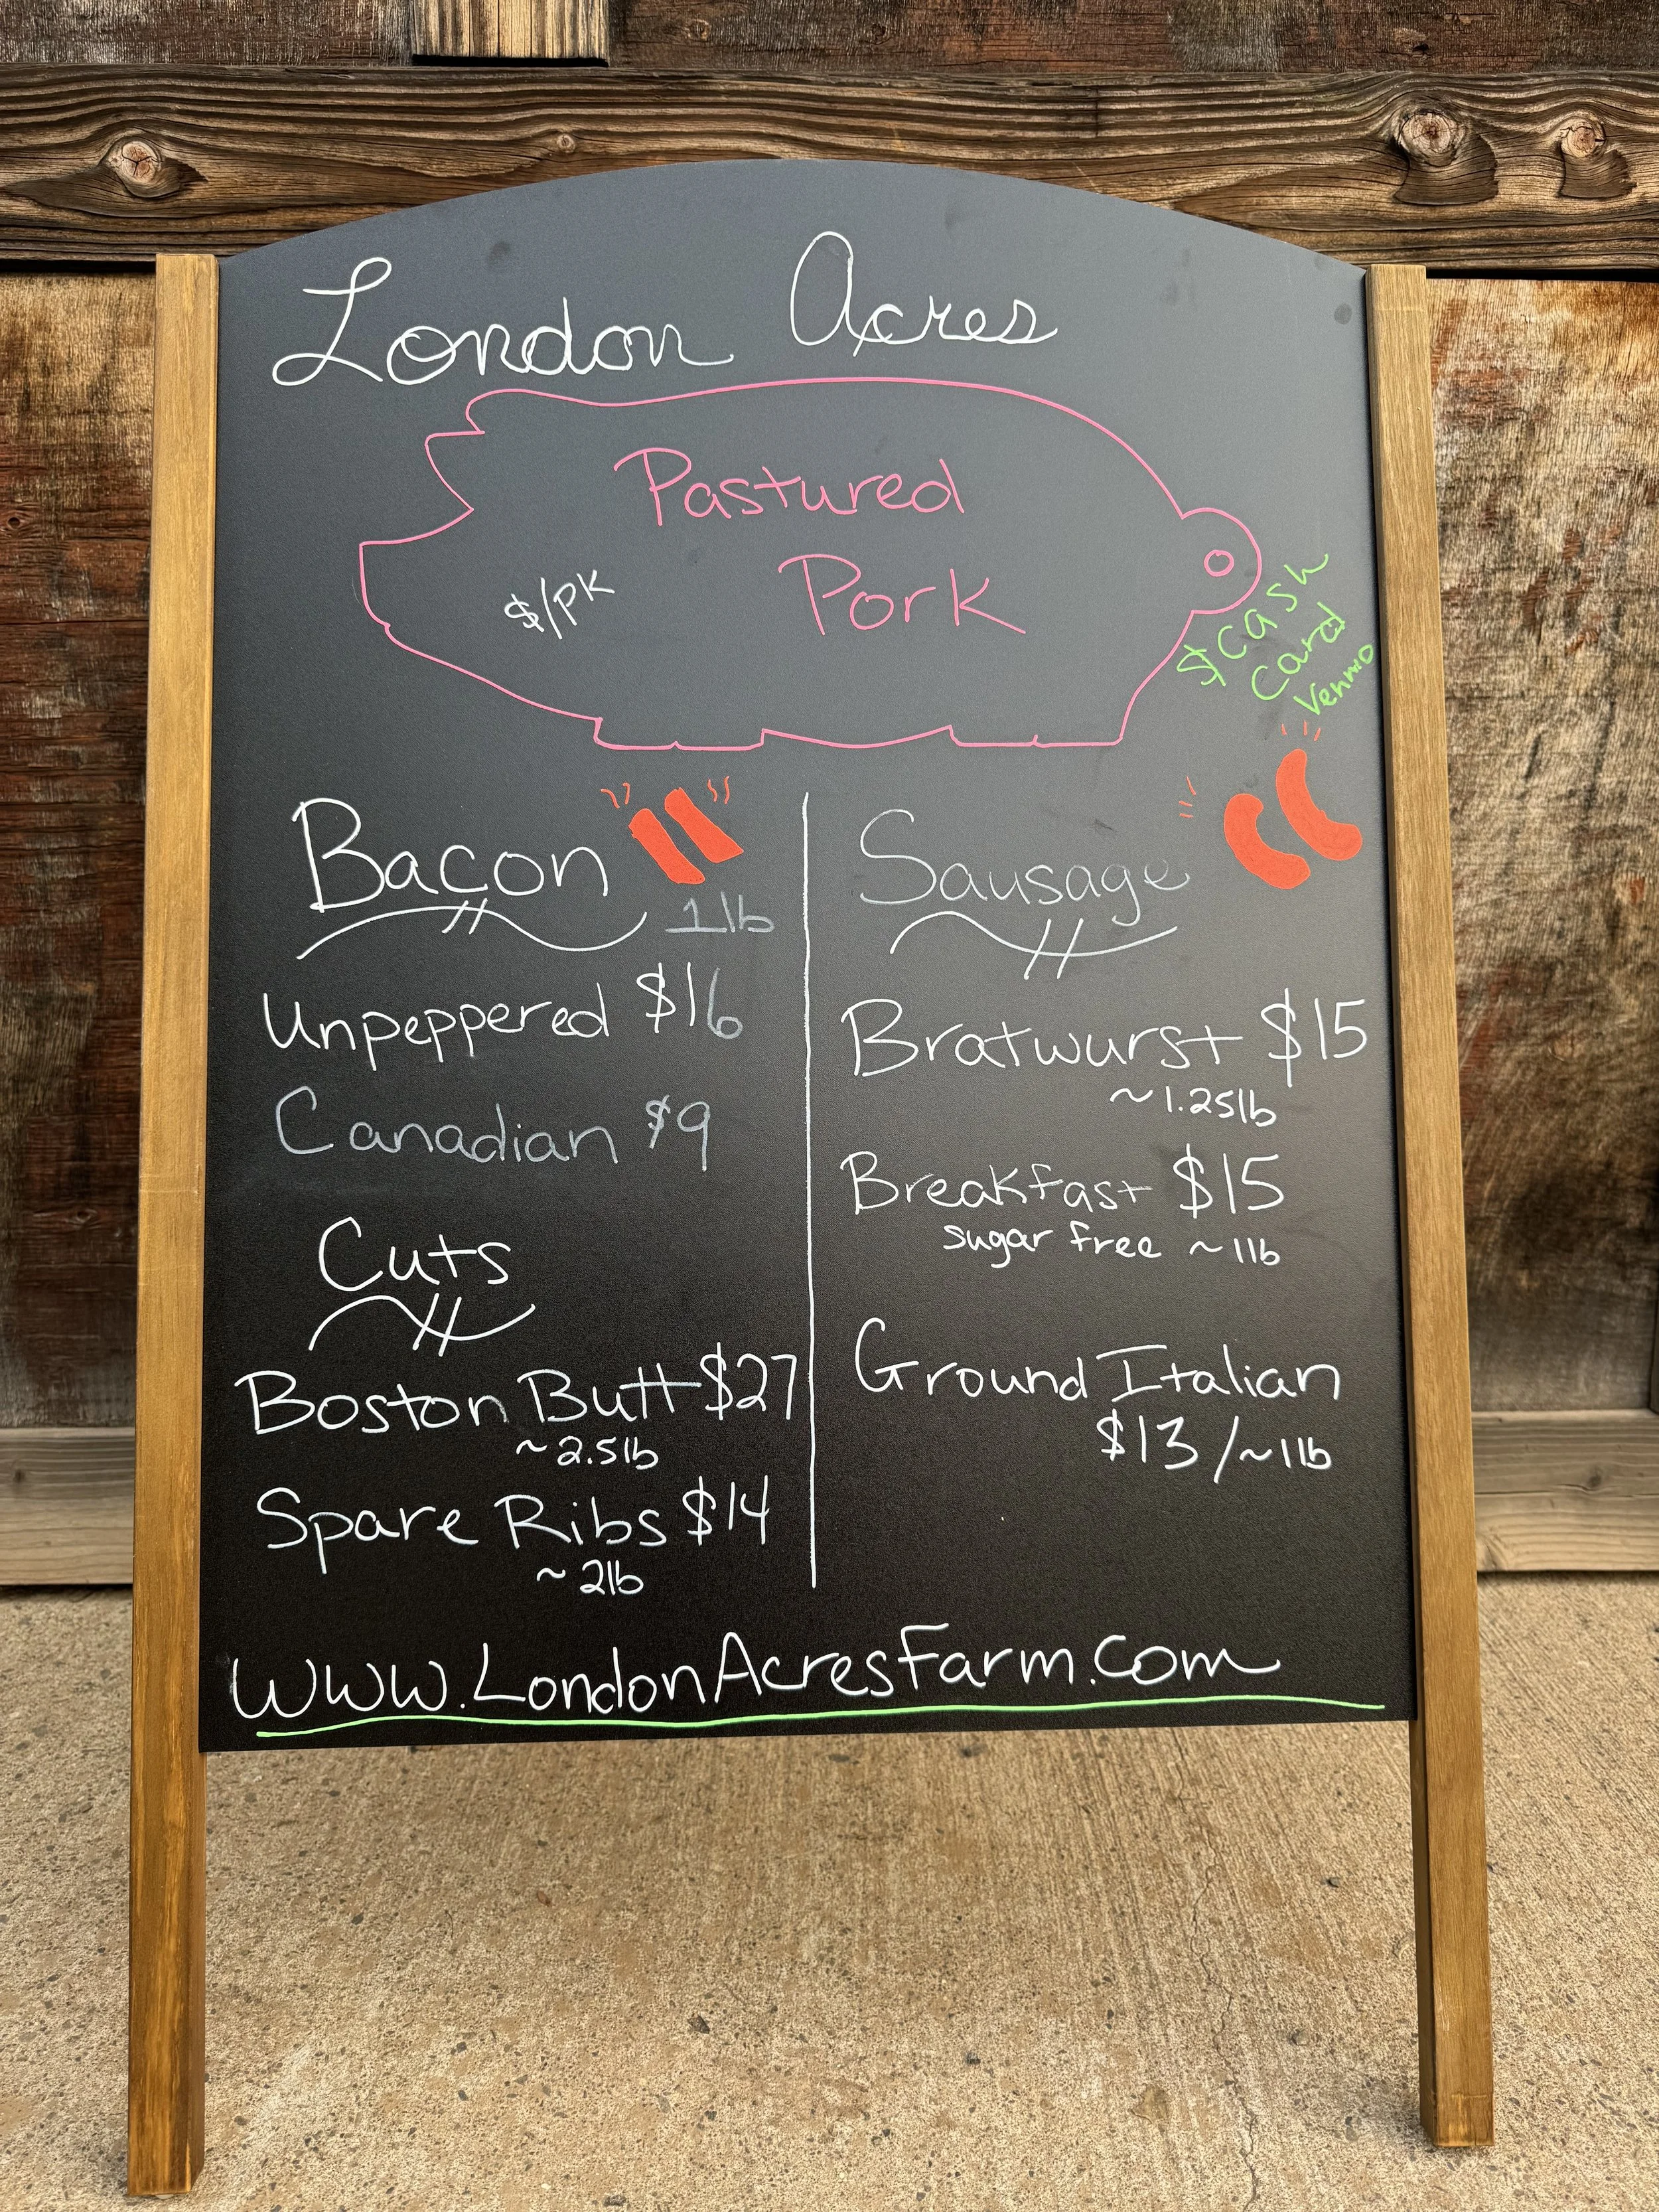 London Acres
Pastured
Pork
$/PK
$ Cash
Card
Venmo
Bacon
1 lb
Unpeppered $16
Canadian $9
Cuts
Boston Butt $27
~2.5lb
Spare Ribs $14
~ 2lb
Sausage
Bratwurst $15
~1.25lb
Breakfast $15
sugar free ~1lb
Ground Italian
$13/~1lb
www.LondonAcresFarm.com